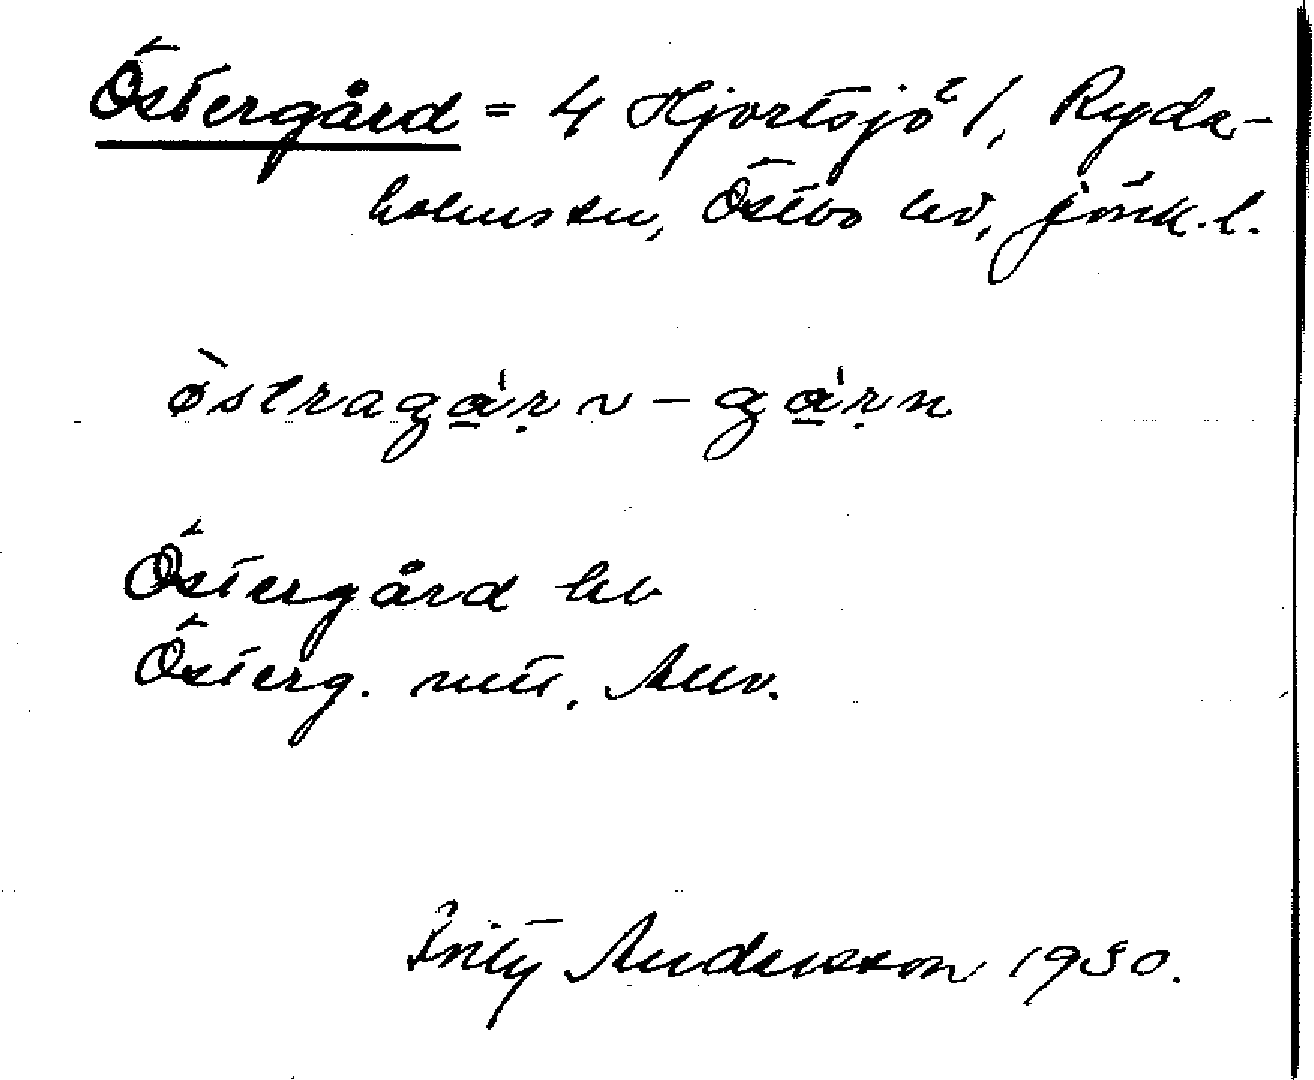 Östergård = 4 Hjortsjö 1, Ryda-
holms sn, Östbo hd, Jönk. l.
östragɑ́ṛn – gɑ́ṛn
Östergård hb
Österg. mtl.
Andersson 1930.